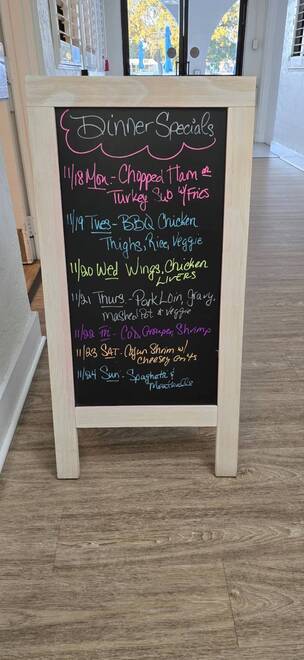 Dinner Specials
11/18 Mon.- Chopped Ham or
Turkey Sub w/ Fries
11/19 Tues- BBQ Chicken
Thighs, Rice, Veggie
11/20 Wed Wings, Chicken
Livers
11/21 Thurs.- Pork Loin, gravy,
Mashed Pot & Veggie
11/22 Fri- Cod, Grouper, Shrimp
11/23 SAT- Cajun Shrim w/
Cheesey Grits
11/24 Sun- Spaghetti &
Meatballs